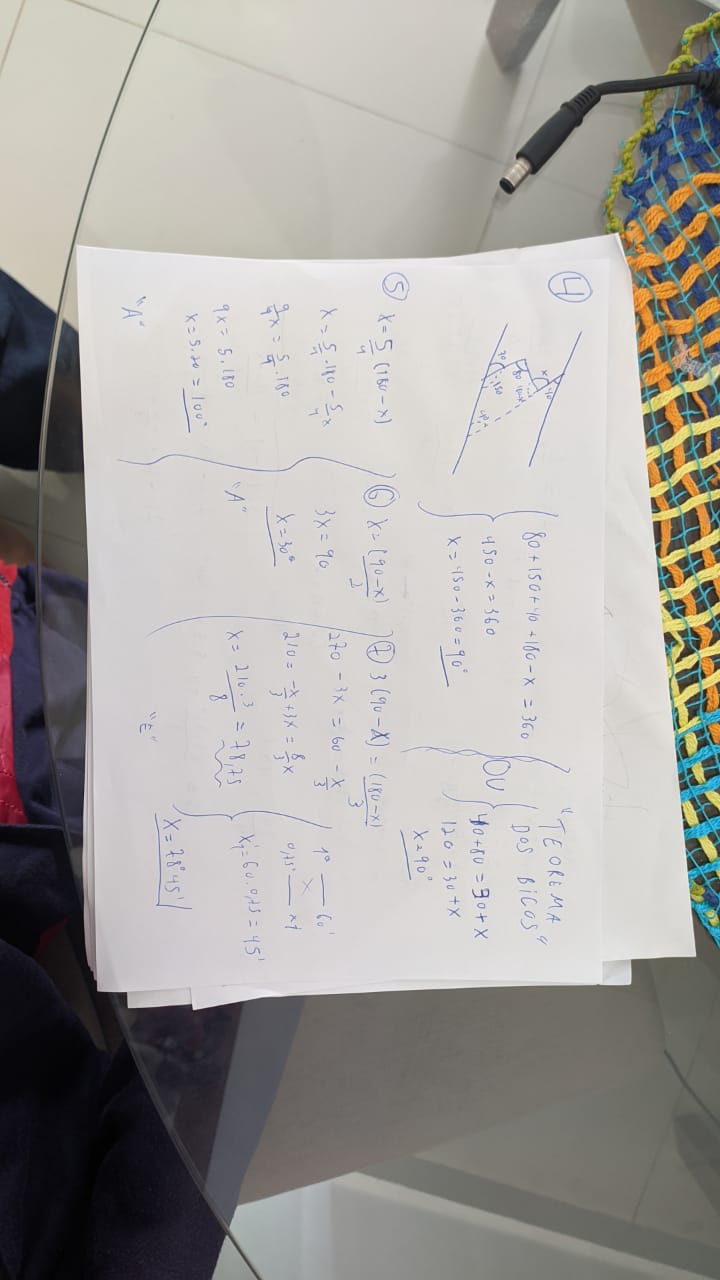 4
80+150+40+180-x = 360
450-x=360
x=450-360=90°
OU
"TEOREMA
DOS BICOS"
40+80=30+x
120=30+x
x=90°
5 x=5/4 (180-x)
x=5/4.180-5/4x
9/4x=5/4.180
9x=5.180
x=5.20=100°
"A"
6 x=(90-x)/2
3x=90
x=30°
"A"
7 3(90-x)=(180-x)/3
270-3x=60-x/3
210=-x/3+3x=8/3x
x=210.3/8=78,75
"E"
1° 60'
0,75° x1
x1=60.0,75=45'
x=78°45'